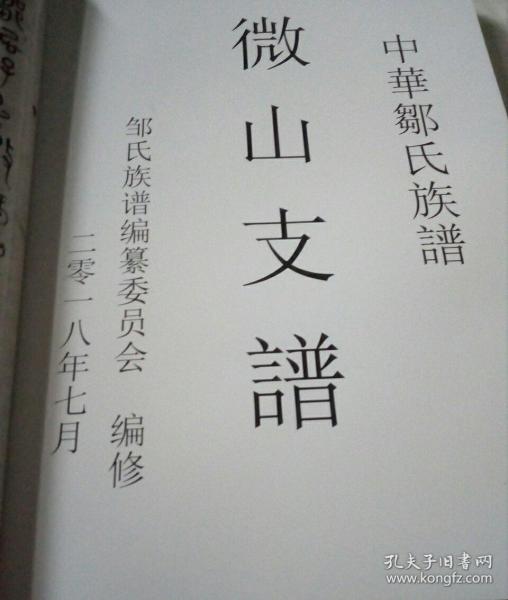 中華鄒氏族譜
微山支譜
邹氏族谱编纂委员会 编修
二零一八年七月
孔夫子旧书网
www.kongfz.com